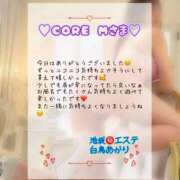 ♡CORE Mさま♡
今日はありがとうございました😊
ずっとニコニコ気持ちよさそうにして
貰えて嬉しかったです🥰
少しでも癒お客になってたら良いなぁ
お風呂でもたくさん気持ちよくて
楽しかったです❤
また一緒に気持ちよくなりましょうね
😊
池袋㊙エステ
白鳥あかり